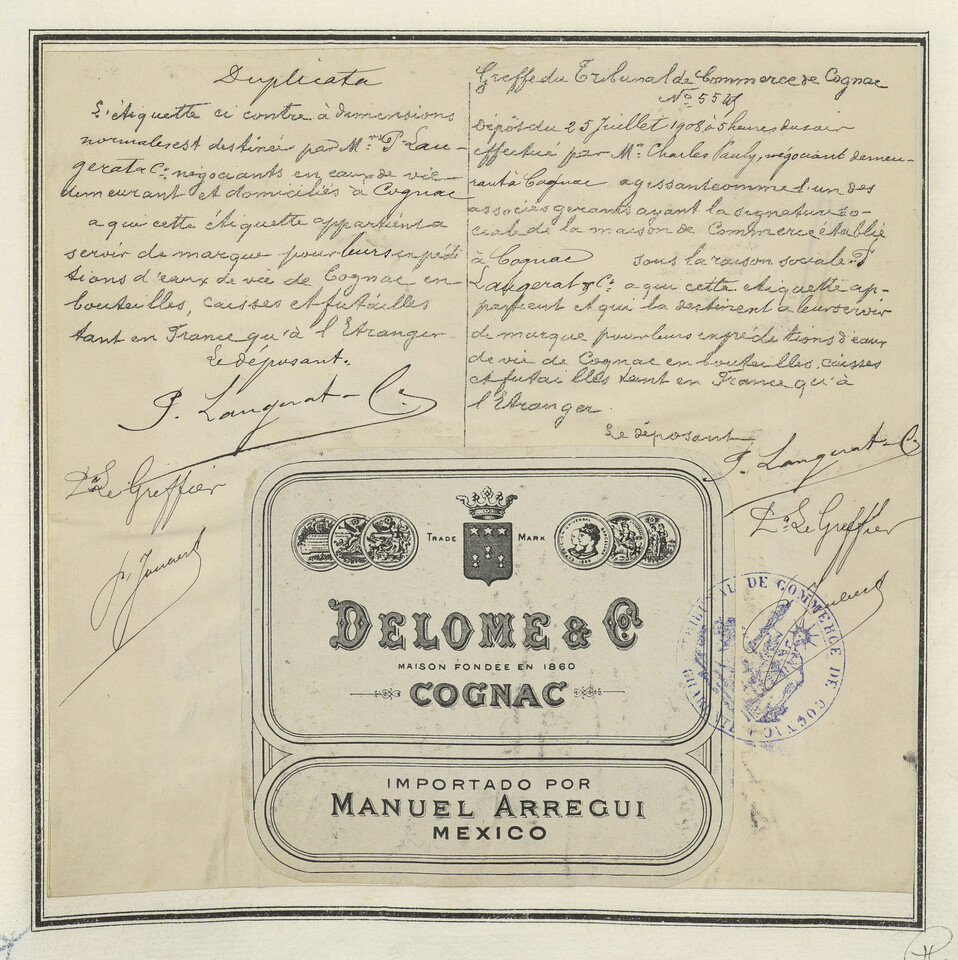 Duplicata
L'étiquette ci contre à dimensions
normales est destinée par Mrs P. Lau-
gerat & Cie négociants en eaux de vie
demeurant et domiciliés à Cognac
a qui cette étiquette appartient a
servir de marque pour leurs expédi
tions d'eaux de vie de Cognac en
bouteilles, caisses et futailles
tant en France qu'à l'Etranger
Le déposant.
P. Laugerat & Cie
Le Greffier
Greffe du Tribunal de Commerce de Cognac
No
Dépôt du 25 Juillet 1908 à 5 heures du soir
effectué par Mr Charles Pauly, négociant demeu-
rant à Cognac agissant comme l'un des
associés gerants ayant la signature so-
ciale de la maison de Commerce établie
à Cognac sous la raison sociale P.
Laugerat & Cie a qui cette étiquette ap-
partient et qui la destinent a leur servir
de marque pour leurs expéditions d'eaux
de vie de Cognac en bouteilles, caisses
et futailles tant en France qu'à
l'Etranger.
Le déposant
P. Laugerat & Cie
Le Greffier
TRADE MARK
DELOME & Co.
MAISON FONDÉE EN 1860
COGNAC
IMPORTADO POR
MANUEL ARREGUI
MEXICO
TRIBUNAL DE COMMERCE DE COGNAC